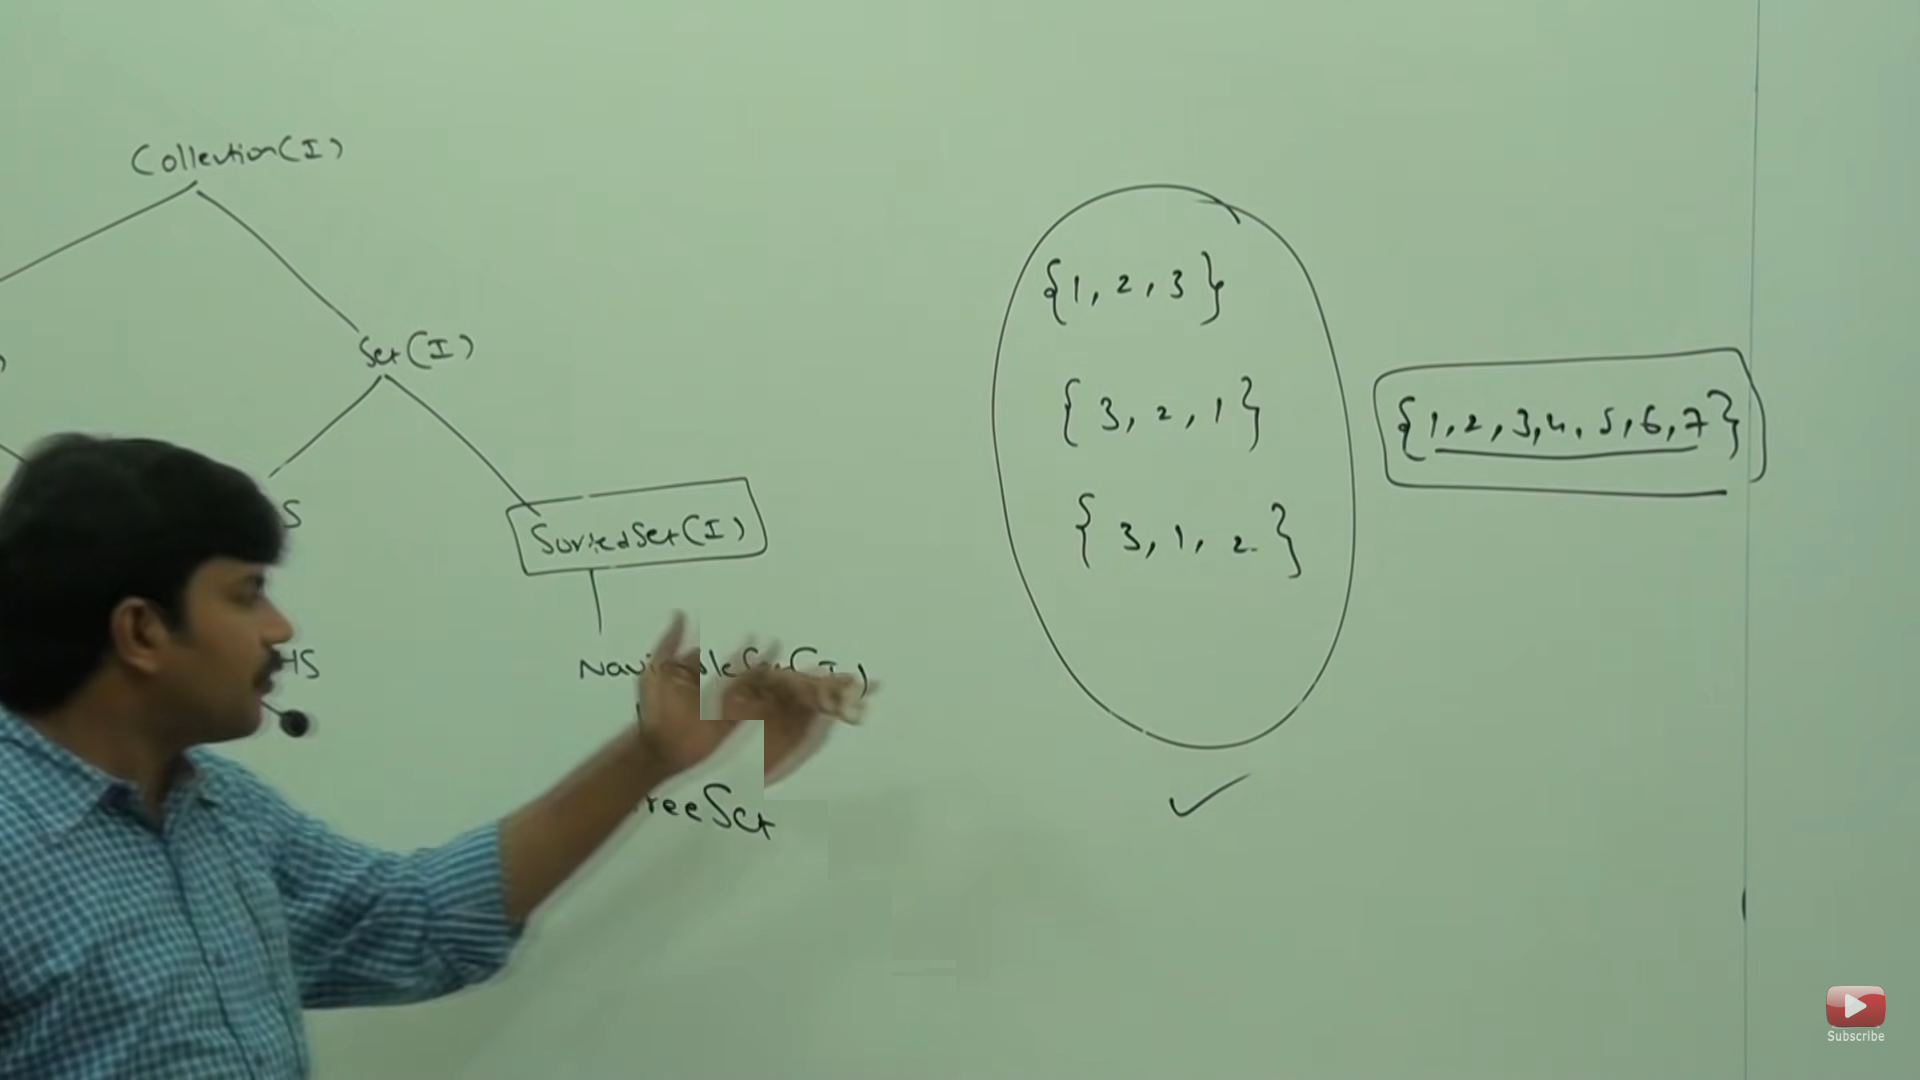 Collection(I)
Set(I)
S
SortedSet(I)
HS
TreeSet
{1, 2, 3}
{3, 2, 1}
{3, 1, 2}
{1, 2, 3, 4, 5, 6, 7}
Subscribe